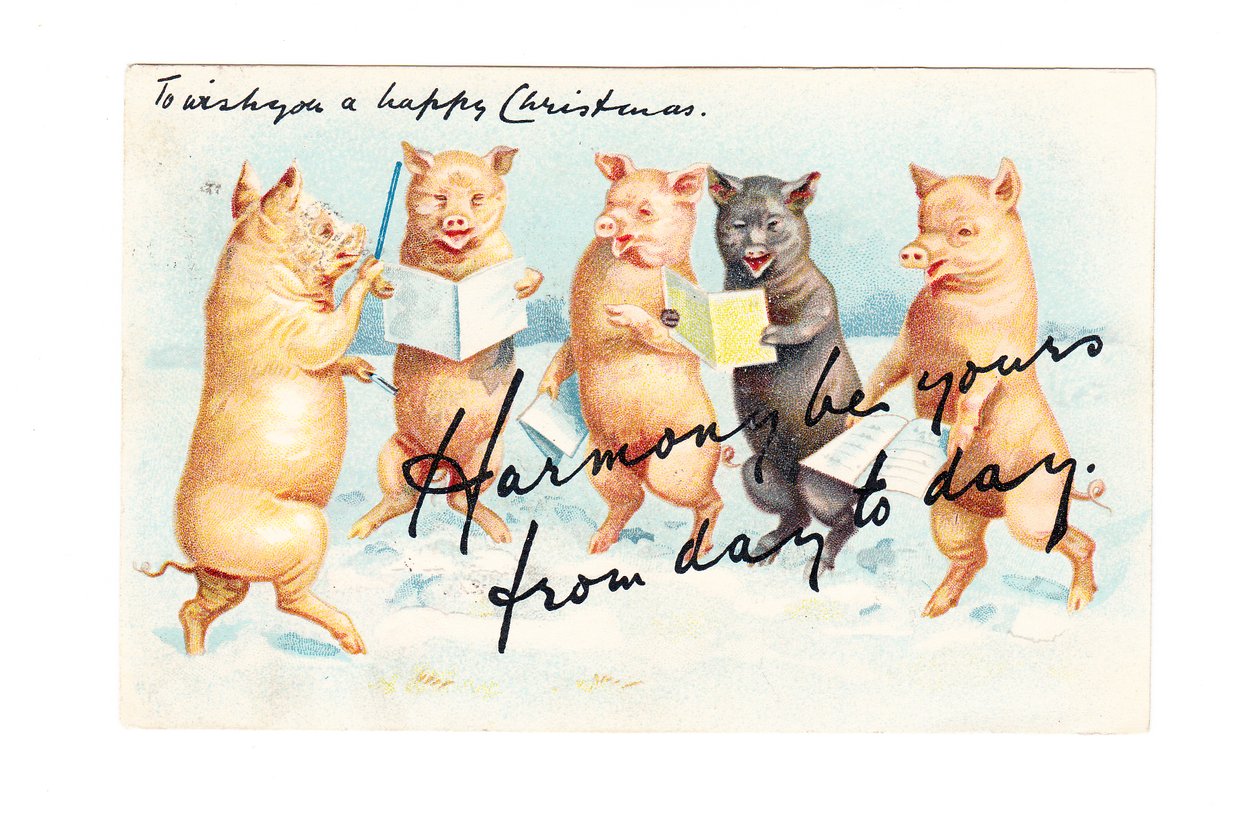 To wish you a happy Christmas.
Harmony be yours
from day to day.